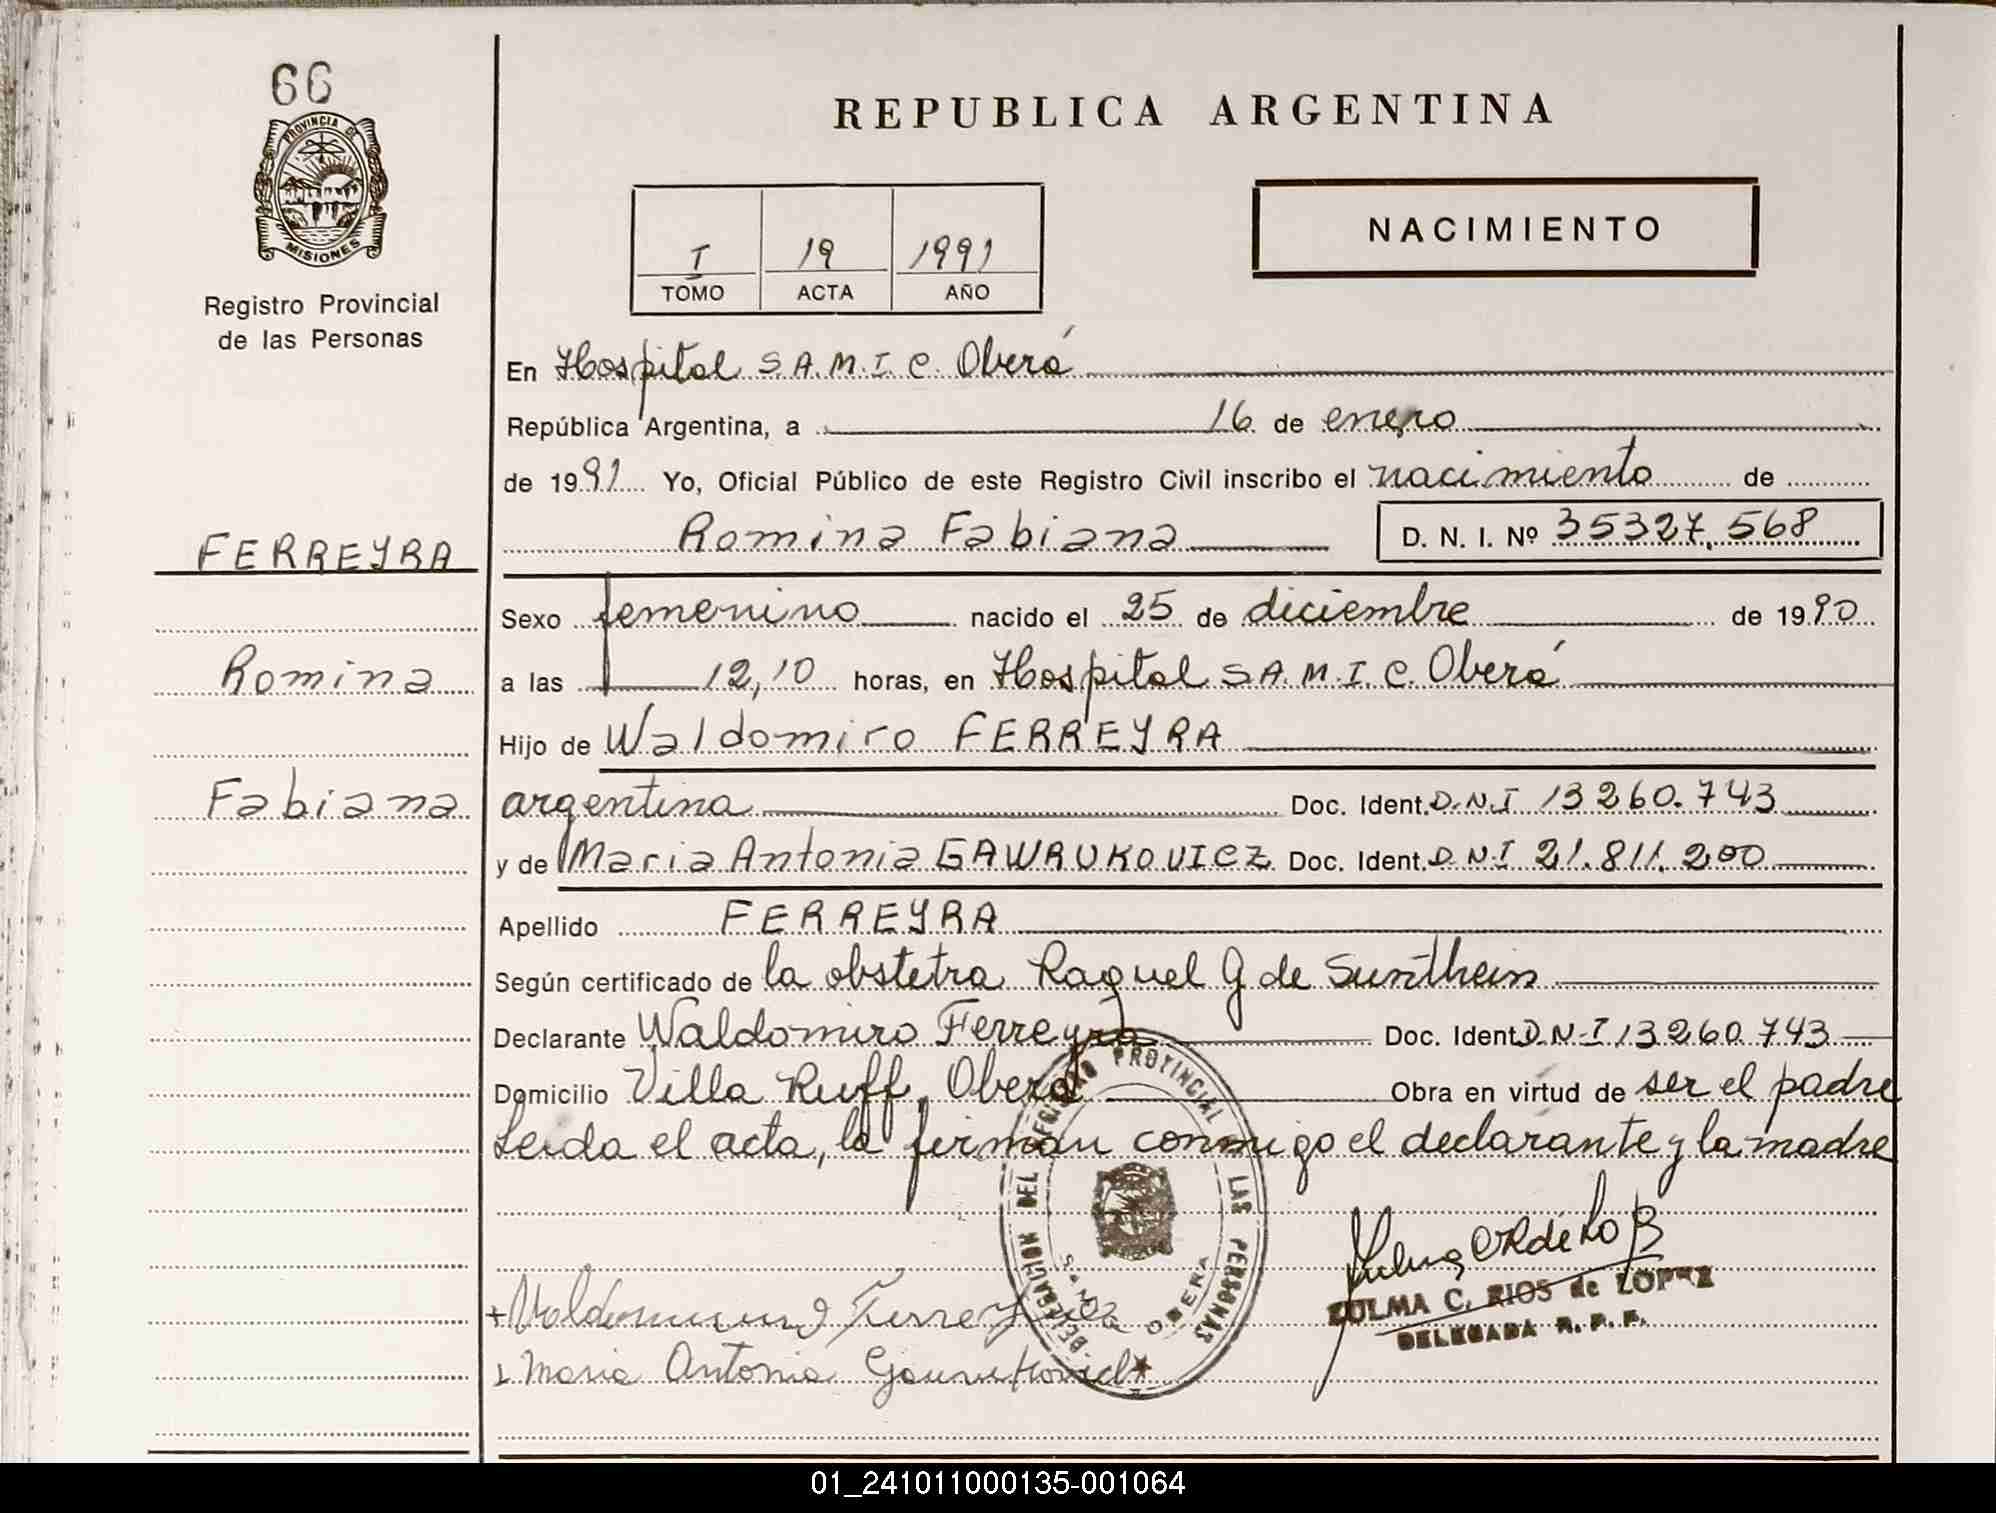 66
PROVINCIA DE
MISIONES
Registro Provincial
de las Personas
FERREYRA
Romina
Fabiana
REPUBLICA ARGENTINA
I 19 1991
TOMO ACTA AÑO
NACIMIENTO
En Hospital S.A.M.I.C. Oberá
República Argentina, a 16 de enero
de 1991 Yo, Oficial Público de este Registro Civil inscribo el nacimiento de
Romina Fabiana D. N. I. Nº 35327.568
Sexo femenino nacido el 25 de diciembre de 1990
a las 12,10 horas, en Hospital S.A.M.I.C. Oberá
Hijo de Waldomiro FERREYRA
argentina Doc. Ident. D.N.I 13260.743
y de Maria Antonia GAWRUKOVICZ Doc. Ident. D.N.I 21.811.200
Apellido FERREYRA
Según certificado de la obstetra Raquel G de Sunthein
Declarante Waldomiro Ferreyra Doc. Ident D.N.I 13260.743
Domicilio Villa Ruff, Oberá Obra en virtud de ser el padre
Leida el acta, la firman conmigo el declarante y la madre
DELEGACION DEL REGISTRO PROVINCIAL DE LAS PERSONAS
OBERA
ZULMA C. RIOS de LOPEZ
DELEGADA R. P. P.
Maria Antonia
01_241011000135-001064